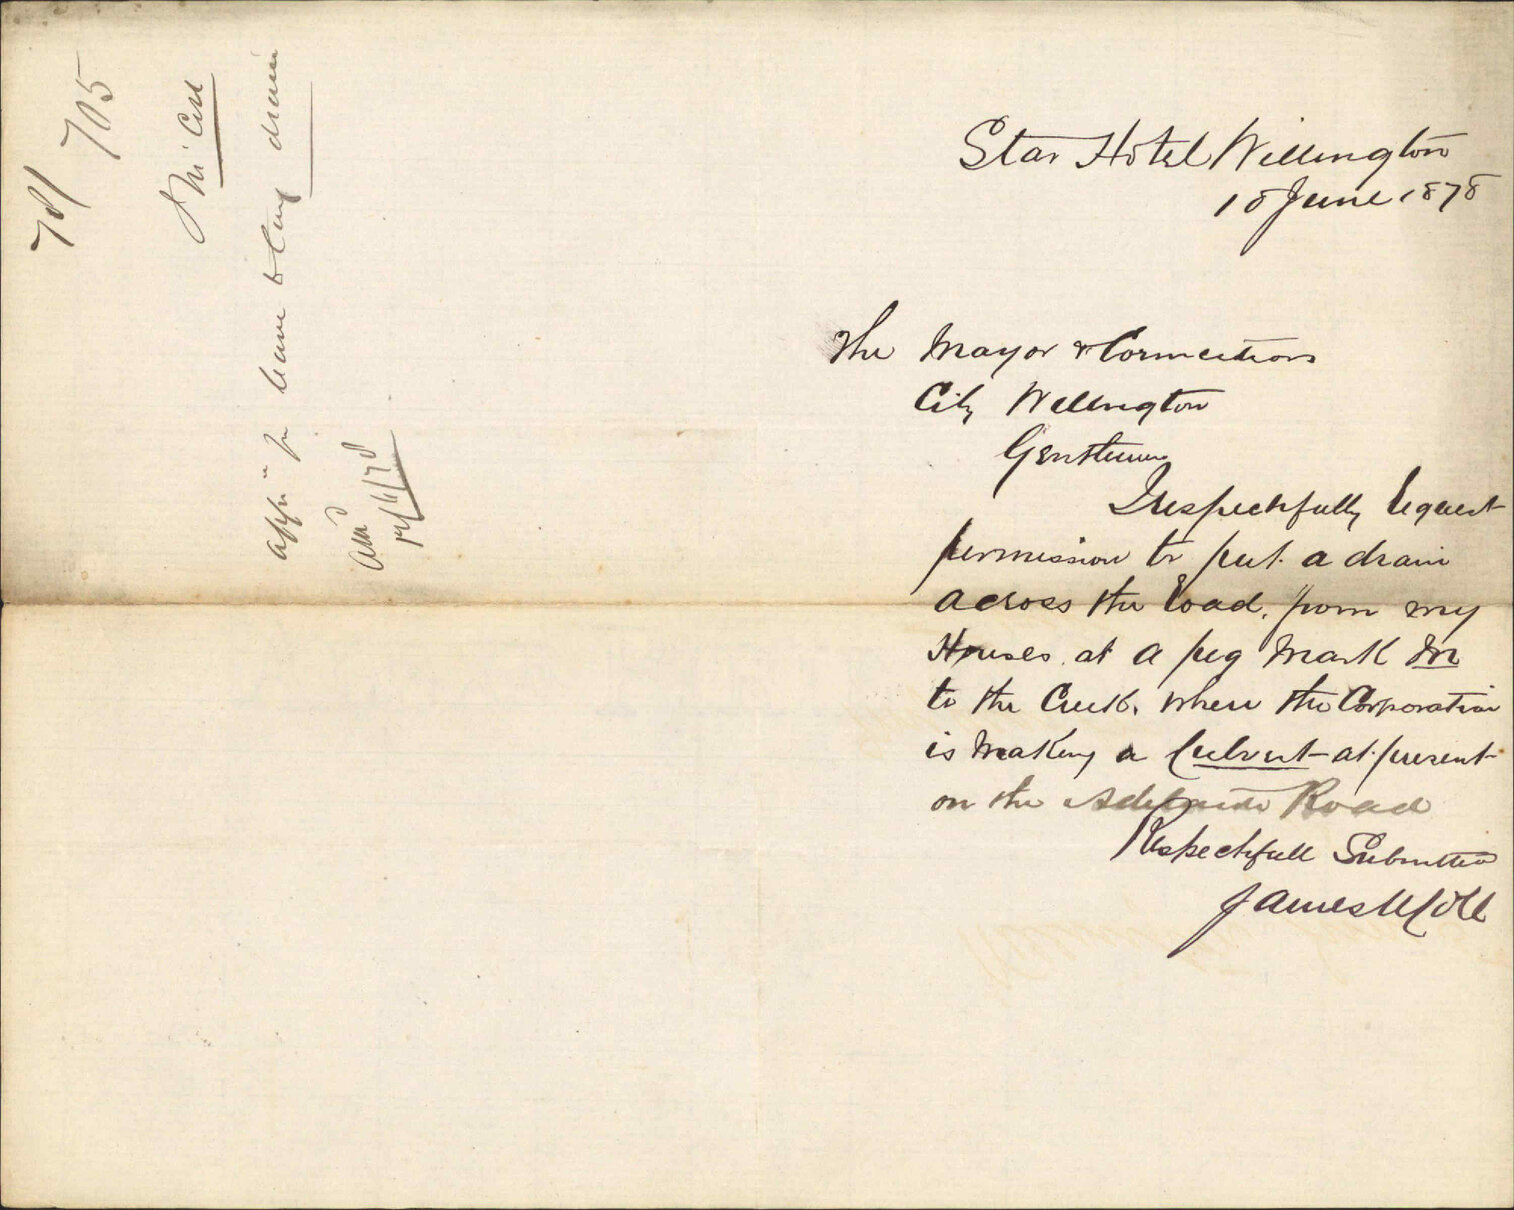 Star Hotel Wellington
18 June 1878
The Mayor & Corncestions
City Wellington
Gentlemen
I respectfully request
permission to put a drain
across the road, from my
Houses at a peg Mark M
to the Creek, where the Corporation
is making a Culvert at present
on the Adelaide Road
Respectfull Submitted
James McGill
78/ 705
J McGill
appn for leave to lay drain